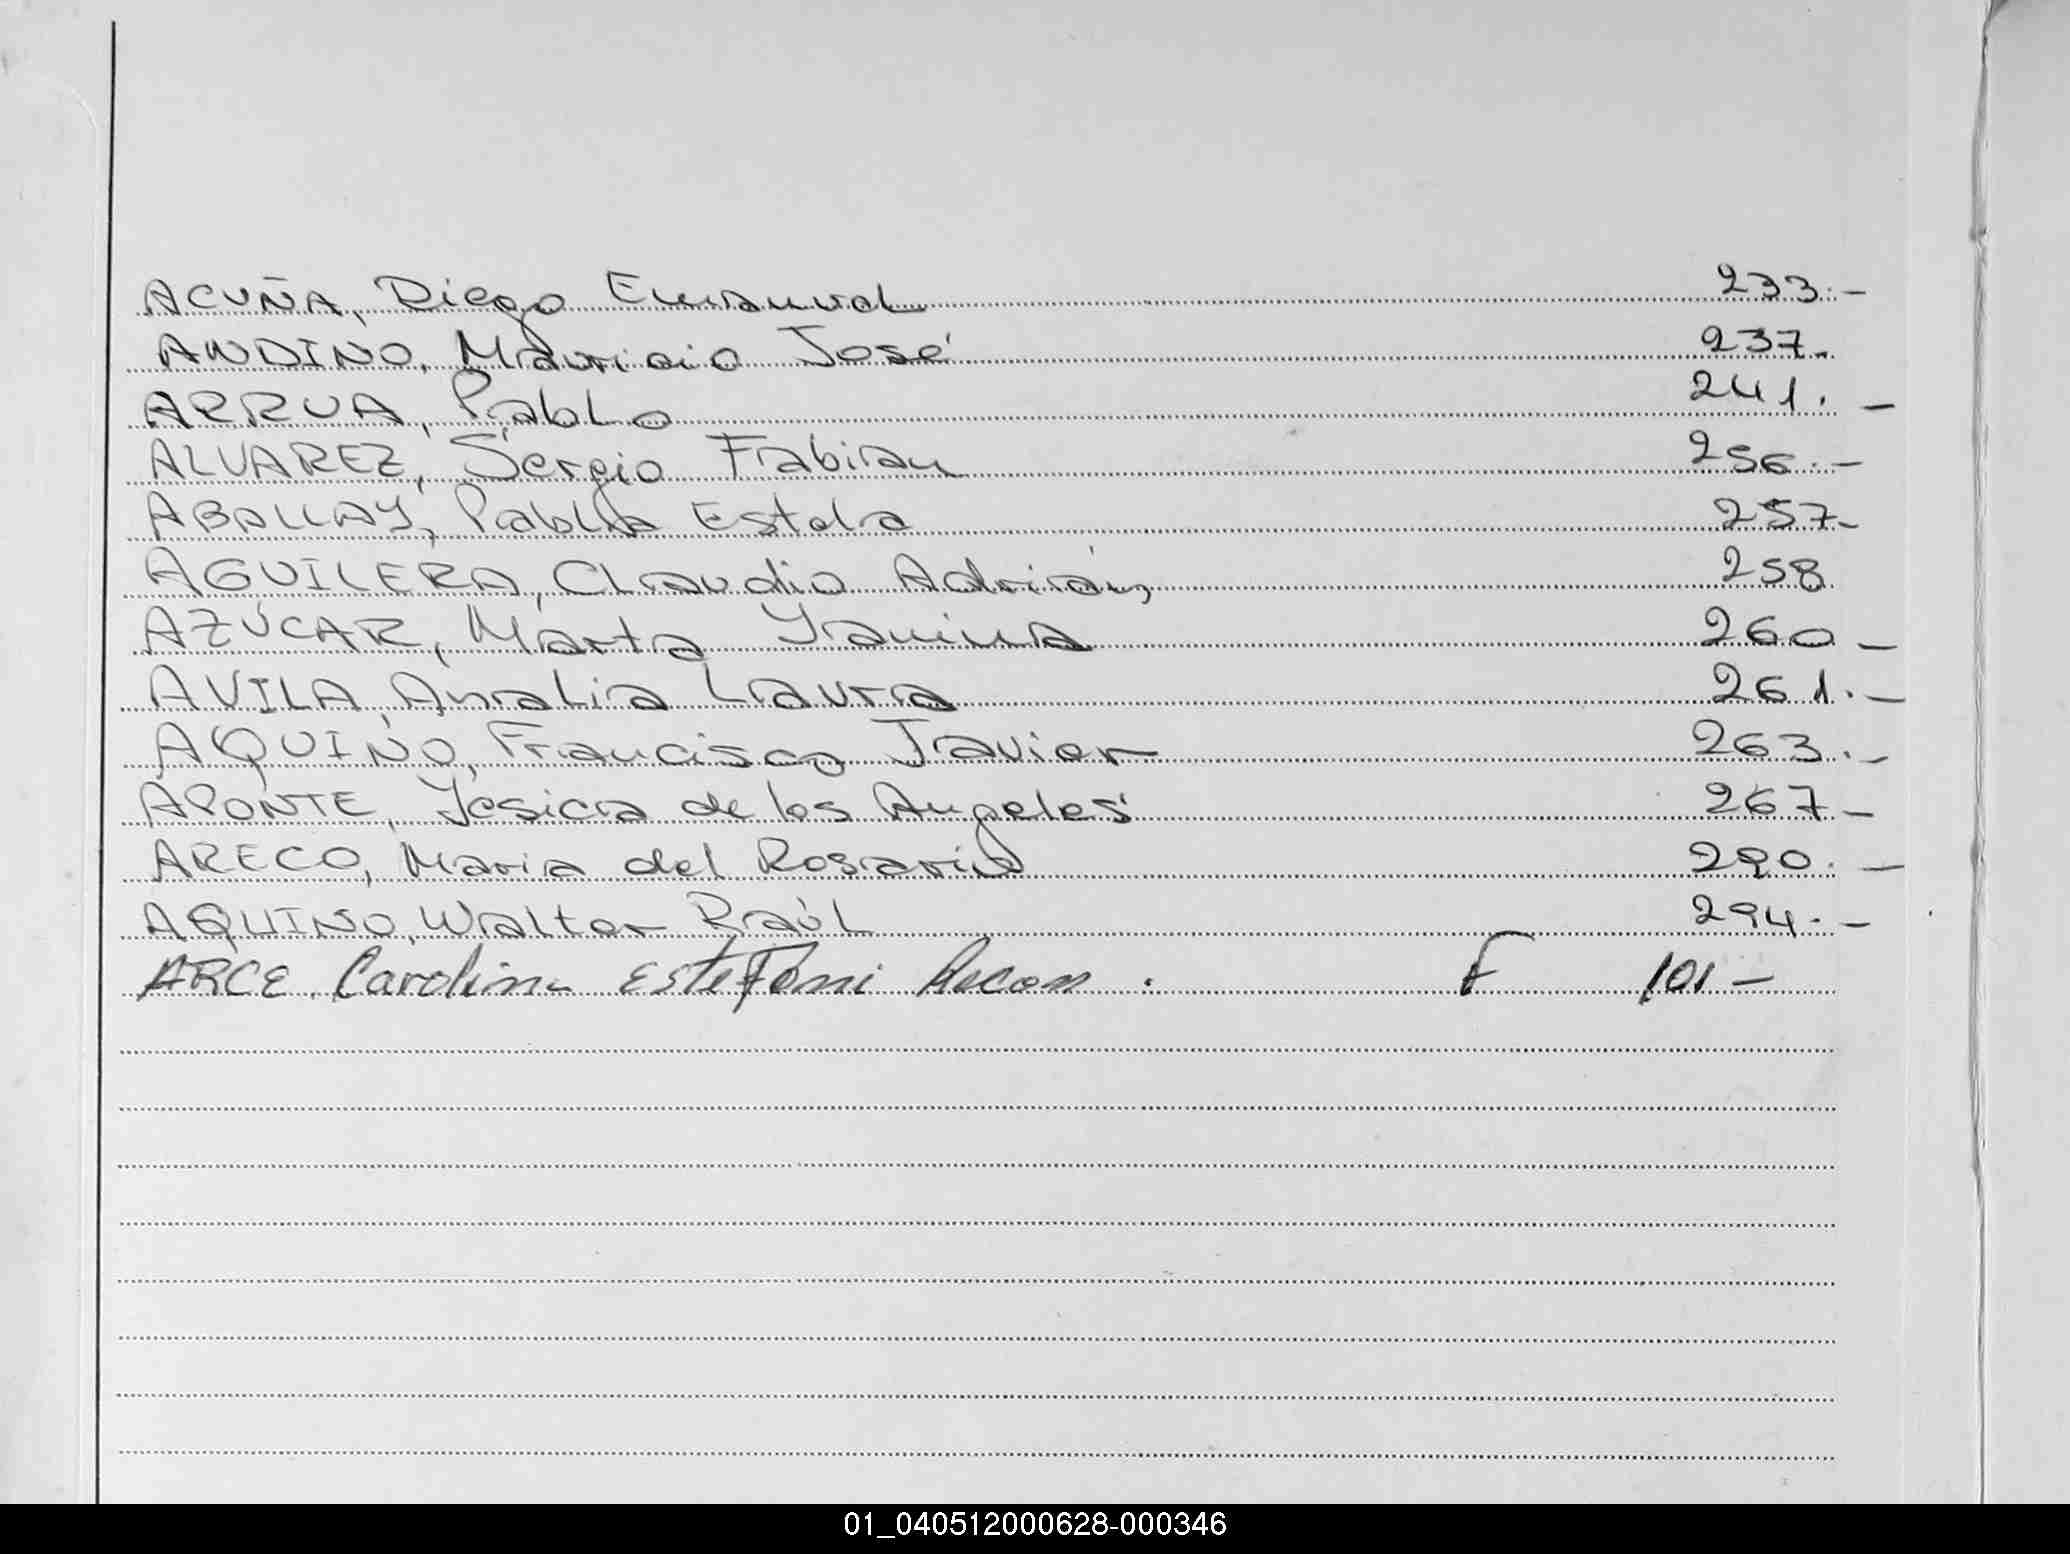 ACUÑA, Diego Emanuel 233.-
ANDINO, Mauricio José 237.
ARRUA, Pablo 241. -
ALVAREZ, Sergio Fabian 256.-
ABALLAY, Pablla Estela 257-
AGUILERA, Claudio Adrián 258
AZÚCAR, Marta Yanina 260 -
AVILA, Analia Laura 261.-
AQUINO, Francisco Javier 263.-
APONTE, Yesica de los Angeles 267-
ARECO, Maria del Rosario 290. -
AQUINO, Walter Raúl 294.-
ARCE, Carolina Estefani F 101-
01_040512000628-000346